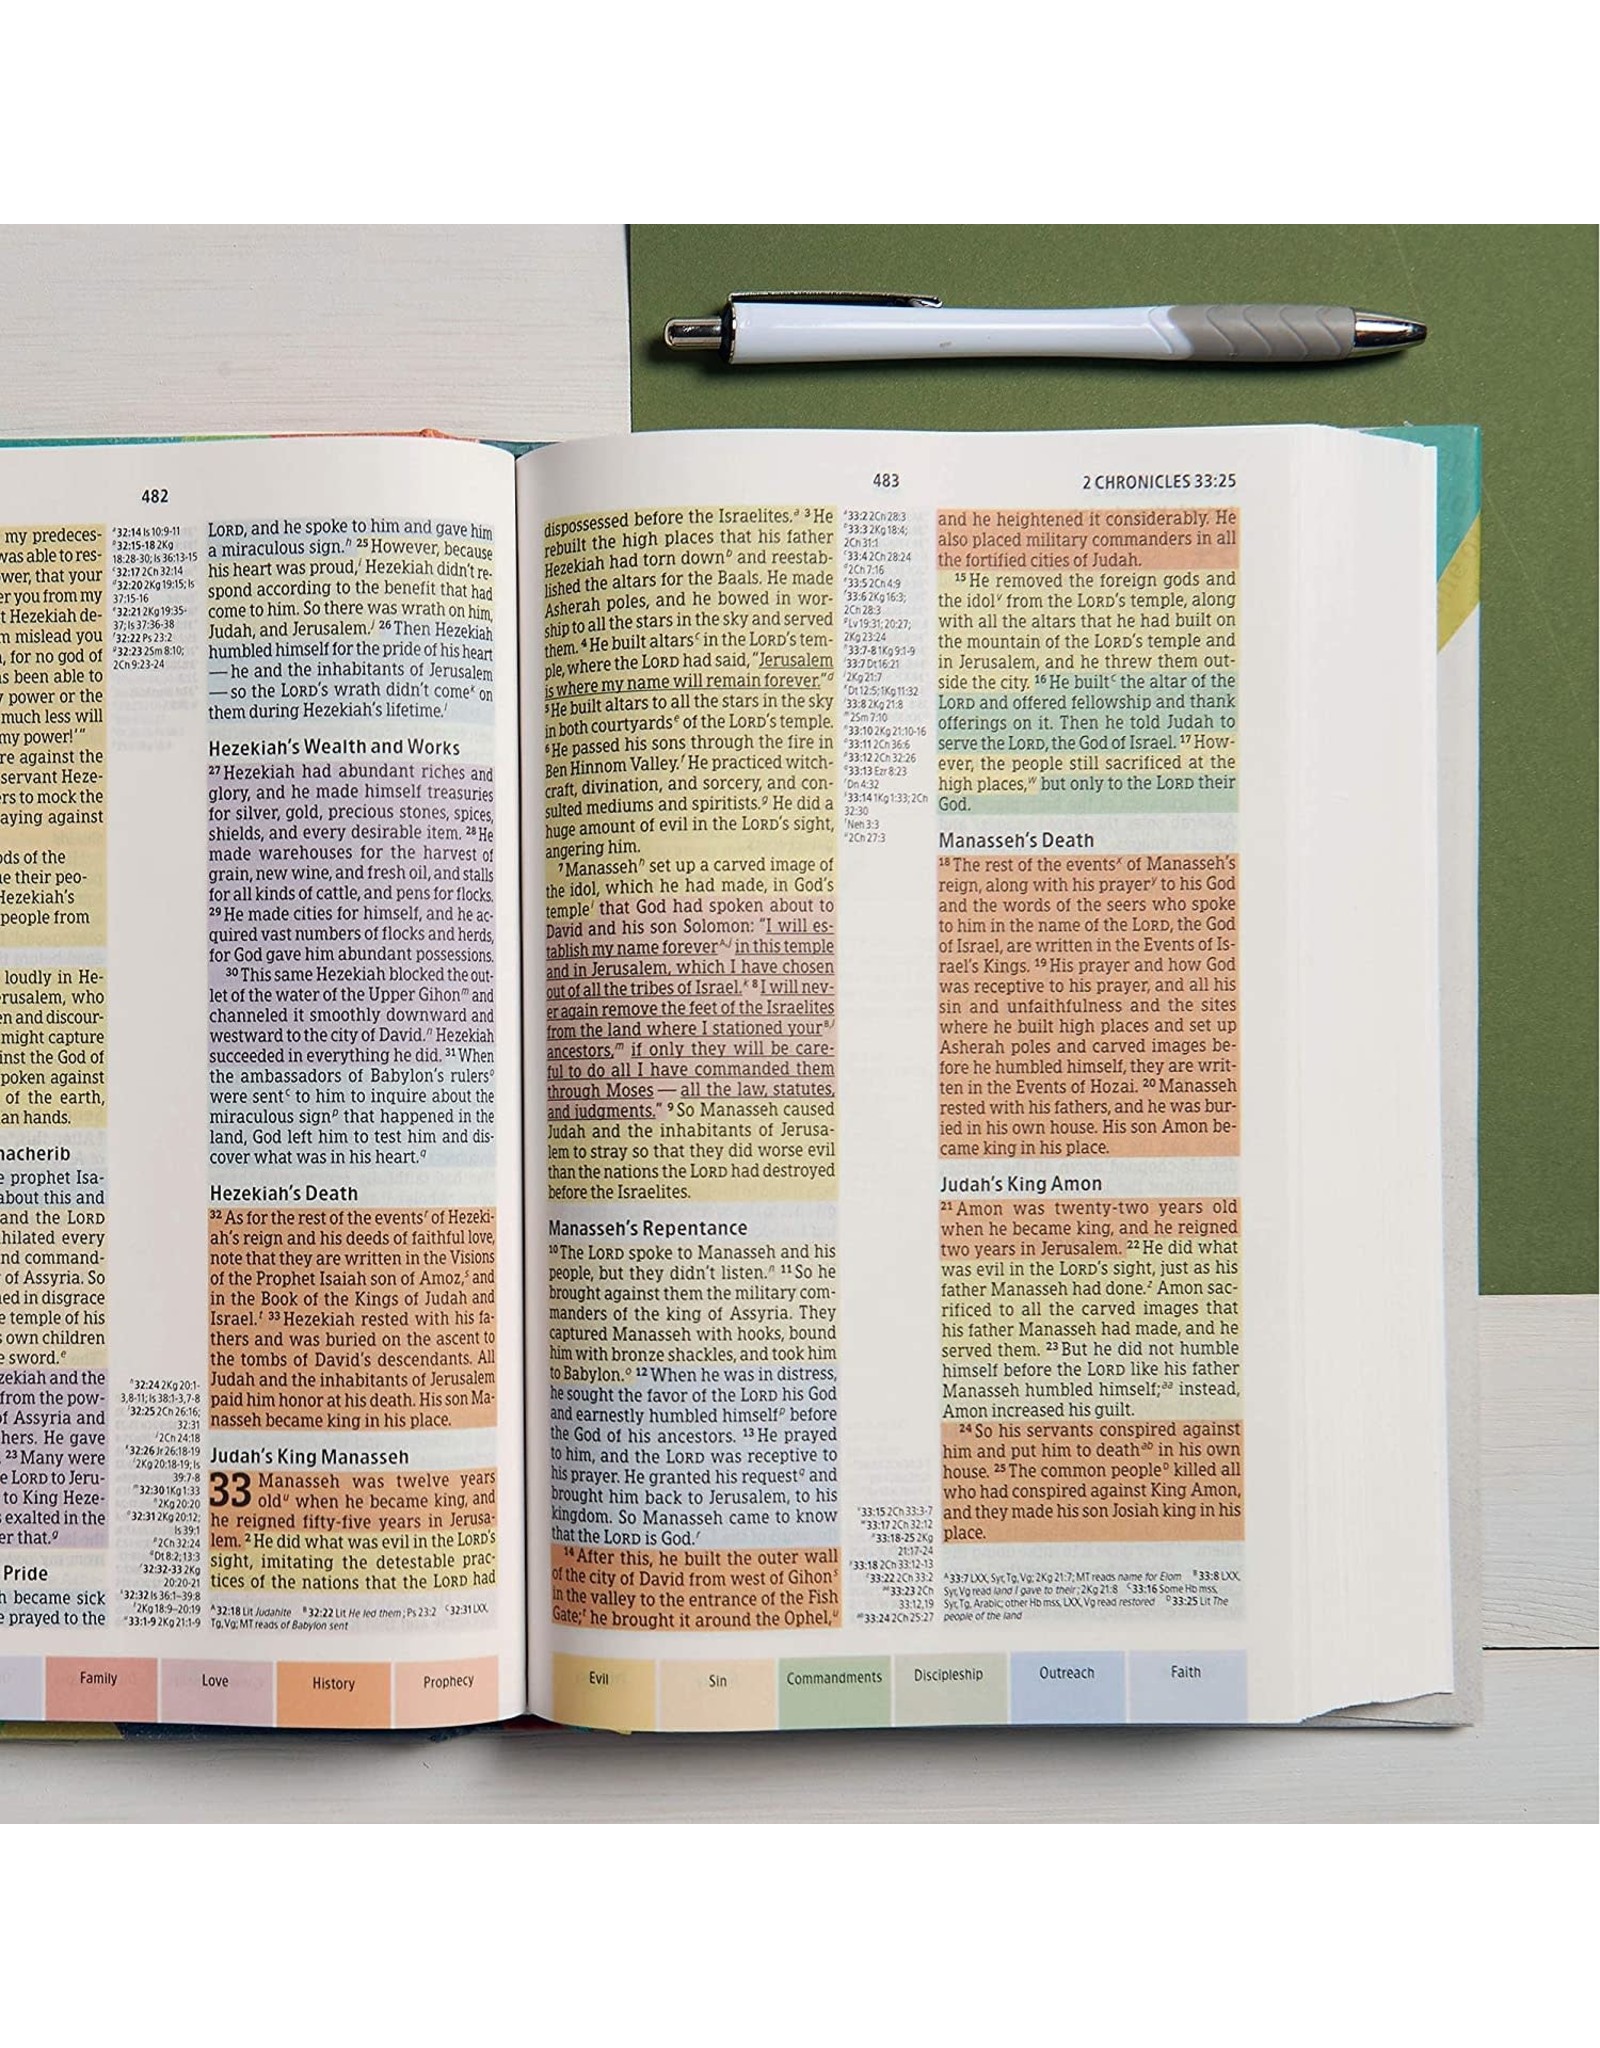 482
my predeces-
was able to res-
ower, that your
er you from my
t Hezekiah de-
m mislead you
, for no god of
s been able to
y power or the
much less will
my power!’”
re against the
servant Heze-
ers to mock the
aying against
ods of the
e their peo-
Hezekiah's
people from
loudly in He-
rusalem, who
en and discour-
might capture
inst the God of
poken against
of the earth,
an hands.
nacherib
e prophet Isa-
about this and
and the LORD
hilated every
nd command-
of Assyria. So
ned in disgrace
e temple of his
s own children
e sword.e
zekiah and the
from the pow-
of Assyria and
hers. He gave
23 Many were
e LORD to Jeru-
to King Heze-
s exalted in the
er that.g
Pride
h became sick
e prayed to the
32:14 Is 10:9-11
32:15-18 2Kg
18:28-30; Is 36:13-15
32:17 2Ch 32:14
32:20 2Kg 19:15; Is
37:15-16
32:21 2Kg 19:35-
37; Is 37:36-38
32:22 Ps 23:2
32:23 2Sm 8:10;
2Ch 9:23-24
32:24 2Kg 20:1-
3,8-11; Is 38:1-3,7-8
32:25 2Ch 26:16;
32:31
2Ch 24:18
32:26 Jr 26:18-19
2Kg 20:18-19; Is
39:7-8
32:30 1Kg 1:33
2Kg 20:20
32:31 2Kg 20:12;
Is 39:1
2Ch 32:24
Dt 8:2; 13:3
32:32-33 2Kg
20:20-21
32:32 Is 36:1–39:8
2Kg 18:9–20:19
33:1-9 2Kg 21:1-9
LORD, and he spoke to him and gave him
a miraculous sign.h 25 However, because
his heart was proud,i Hezekiah didn't re-
spond according to the benefit that had
come to him. So there was wrath on him,
Judah, and Jerusalem.j 26 Then Hezekiah
humbled himself for the pride of his heart
— he and the inhabitants of Jerusalem
— so the LORD's wrath didn't comek on
them during Hezekiah's lifetime.l
Hezekiah's Wealth and Works
27 Hezekiah had abundant riches and
glory, and he made himself treasuries
for silver, gold, precious stones, spices,
shields, and every desirable item. 28 He
made warehouses for the harvest of
grain, new wine, and fresh oil, and stalls
for all kinds of cattle, and pens for flocks.
29 He made cities for himself, and he ac-
quired vast numbers of flocks and herds,
for God gave him abundant possessions.
30 This same Hezekiah blocked the out-
let of the water of the Upper Gihonm and
channeled it smoothly downward and
westward to the city of David.n Hezekiah
succeeded in everything he did. 31 When
the ambassadors of Babylon's rulerso
were sentC to him to inquire about the
miraculous signp that happened in the
land, God left him to test him and dis-
cover what was in his heart.q
Hezekiah's Death
32 As for the rest of the eventsr of Hezeki-
ah's reign and his deeds of faithful love,
note that they are written in the Visions
of the Prophet Isaiah son of Amoz,s and
in the Book of the Kings of Judah and
Israel.t 33 Hezekiah rested with his fa-
thers and was buried on the ascent to
the tombs of David's descendants. All
Judah and the inhabitants of Jerusalem
paid him honor at his death. His son Ma-
nasseh became king in his place.
Judah's King Manasseh
33 Manasseh was twelve years
oldu when he became king, and
he reigned fifty-five years in Jerusa-
lem. 2 He did what was evil in the LORD's
sight, imitating the detestable prac-
tices of the nations that the LORD had
A32:18 Lit Judahite B32:22 Lit He led them; Ps 23:2 C32:31 LXX,
Tg, Vg; MT reads of Babylon sent
Family
Love
History
Prophecy
483
2 CHRONICLES 33:25
dispossessed before the Israelites.a 3 He
rebuilt the high places that his father
Hezekiah had torn downb and reestab-
lished the altars for the Baals. He made
Asherah poles, and he bowed in wor-
ship to all the stars in the sky and served
them. 4 He built altarsc in the LORD's tem-
ple, where the LORD had said, “Jerusalem
is where my name will remain forever.”d
5 He built altars to all the stars in the sky
in both courtyardse of the LORD's temple.
6 He passed his sons through the fire in
Ben Hinnom Valley.f He practiced witch-
craft, divination, and sorcery, and con-
sulted mediums and spiritists.g He did a
huge amount of evil in the LORD's sight,
angering him.
7 Manassehh set up a carved image of
the idol, which he had made, in God's
templei that God had spoken about to
David and his son Solomon: “I will es-
tablish my name foreverA,j in this temple
and in Jerusalem, which I have chosen
out of all the tribes of Israel.k 8 I will nev-
er again remove the feet of the Israelites
from the land where I stationed yourB,l
ancestors,m if only they will be care-
ful to do all I have commanded them
through Moses — all the law, statutes,
and judgments.” 9 So Manasseh caused
Judah and the inhabitants of Jerusa-
lem to stray so that they did worse evil
than the nations the LORD had destroyed
before the Israelites.
Manasseh's Repentance
10 The LORD spoke to Manasseh and his
people, but they didn't listen.n 11 So he
brought against them the military com-
manders of the king of Assyria. They
captured Manasseh with hooks, bound
him with bronze shackles, and took him
to Babylon.o 12 When he was in distress,
he sought the favor of the LORD his God
and earnestly humbled himselfp before
the God of his ancestors. 13 He prayed
to him, and the LORD was receptive to
his prayer. He granted his requestq and
brought him back to Jerusalem, to his
kingdom. So Manasseh came to know
that the LORD is God.r
14 After this, he built the outer wall
of the city of David from west of Gihons
in the valley to the entrance of the Fish
Gate;t he brought it around the Ophel,u
33:2 2Ch 28:3
33:3 2Kg 18:4;
2Ch 31:1
33:4 2Ch 28:24
2Ch 7:16
33:5 2Ch 4:9
33:6 2Kg 16:3;
2Ch 28:3
Lv 19:31; 20:27;
2Kg 23:24
33:7-8 1Kg 9:1-9
33:7 Dt 16:21
2Kg 21:7
Dt 12:5; 1Kg 11:32
33:8 2Kg 21:8
2Sm 7:10
33:10 2Kg 21:10-16
33:11 2Ch 36:6
33:12 2Ch 32:26
33:13 Ezr 8:23
Dn 4:32
33:14 1Kg 1:33; 2Ch
32:30
Neh 3:3
2Ch 27:3
33:15 2Ch 33:3-7
33:17 2Ch 32:12
33:18-25 2Kg
21:17-24
33:18 2Ch 33:12-13
33:22 2Ch 33:2
33:23 2Ch
33:12,19
33:24 2Ch 25:27
and he heightened it considerably. He
also placed military commanders in all
the fortified cities of Judah.
15 He removed the foreign gods and
the idolv from the LORD's temple, along
with all the altars that he had built on
the mountain of the LORD's temple and
in Jerusalem, and he threw them out-
side the city. 16 He builtC the altar of the
LORD and offered fellowship and thank
offerings on it. Then he told Judah to
serve the LORD, the God of Israel. 17 How-
ever, the people still sacrificed at the
high places,w but only to the LORD their
God.
Manasseh's Death
18 The rest of the eventsx of Manasseh's
reign, along with his prayery to his God
and the words of the seers who spoke
to him in the name of the LORD, the God
of Israel, are written in the Events of Is-
rael's Kings. 19 His prayer and how God
was receptive to his prayer, and all his
sin and unfaithfulness and the sites
where he built high places and set up
Asherah poles and carved images be-
fore he humbled himself, they are writ-
ten in the Events of Hozai. 20 Manasseh
rested with his fathers, and he was bur-
ied in his own house. His son Amon be-
came king in his place.
Judah's King Amon
21 Amon was twenty-two years old
when he became king, and he reigned
two years in Jerusalem. 22 He did what
was evil in the LORD's sight, just as his
father Manasseh had done.z Amon sac-
rificed to all the carved images that
his father Manasseh had made, and he
served them. 23 But he did not humble
himself before the LORD like his father
Manasseh humbled himself;aa instead,
Amon increased his guilt.
24 So his servants conspired against
him and put him to deathab in his own
house. 25 The common peopleD killed all
who had conspired against King Amon,
and they made his son Josiah king in his
place.
A33:7 LXX, Syr, Tg, Vg; 2Kg 21:7; MT reads name for Elom B33:8 LXX,
Syr, Vg read land I gave to their; 2Kg 21:8 C33:16 Some Hb mss,
Syr, Tg, Arabic; other Hb mss, LXX, Vg read restored D33:25 Lit The
people of the land
Evil
Sin
Commandments
Discipleship
Outreach
Faith